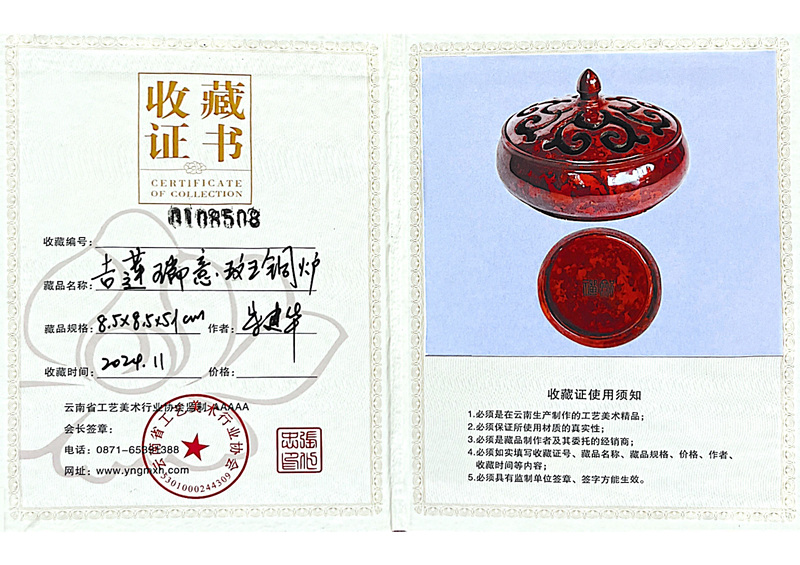 收藏
证书
CERTIFICATE
OF COLLECTION
0108508
收藏编号：
藏品名称：吉莲瑞意·斑铜炉
藏品规格：8.5x8.5x51cm 作者：
收藏时间：2024.11 价格：
云南省工艺美术行业协会监制 AAAAA
会长签章：
电话：0871-65391388
网址：www.yngmxh.com
云南省工艺美术行业协会
5301000244309
收藏证使用须知
1.必须是在云南生产制作的工艺美术精品；
2.必须保证所使用材质的真实性；
3.必须是藏品制作者及其委托的经销商；
4.必须如实填写收藏证号、藏品名称、藏品规格、价格、作者、
收藏时间等内容；
5.必须具有监制单位签章、签字方能生效。